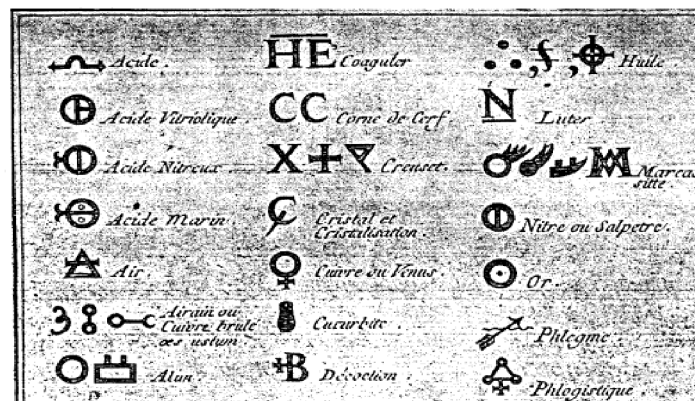 Acide.
Acide Vitriolique.
Acide Nitreux.
Acide Marin.
Air.
Airain ou
Cuivre brulé
œs ustum
Alun.
HE Coaguler
CC Corne de Cerf.
X Creuset.
Cristal et
Cristalisation.
Cuivre ou Venus.
Cucurbite.
B Décoction.
Huile.
N Luter
Marcas
sitte.
Nitre ou Salpetre.
Or.
Phlegme.
Phlogistique.